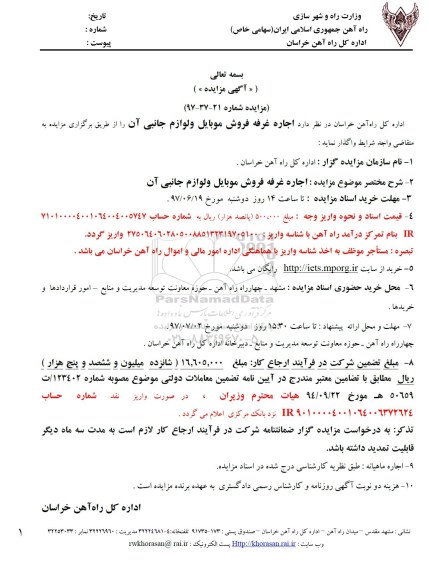 وزارت راه و شهر سازی
تاریخ:
راه آهن جمهوری اسلامی ایران(سهامی خاص)
شماره :
اداره کل راه آهن خراسان
پیوست :
بسمه تعالی
( « آگهی مزایده » )
(مزایده شماره ۲۱-۳۷-۹۷)
اداره کل راه‌آهن خراسان در نظر دارد اجاره غرفه فروش موبایل ولوازم جانبی آن را از طریق برگزاری مزایده به
متقاضی واجد شرایط واگذار نماید :
۱- نام سازمان مزایده گزار : اداره کل راه آهن خراسان .
۲- شرح مختصر موضوع مزایده : اجاره غرفه فروش موبایل ولوازم جانبی آن
۳- مهلت خرید اسناد مزایده : تا ساعت ۱۴ روز دوشنبه مورخ ۹۷/۰۶/۱۹ .
۴- قیمت اسناد و نحوه واریز وجه : مبلغ ۵۰۰,۰۰۰ (پانصد هزار) ریال به شماره حساب
IR بنام تمرکز درآمد راه آهن با شناسه واریز : واریز گردد.
تبصره : مستأجر موظف به اخذ شناسه واریز با هماهنگی اداره امور مالی و اموال راه آهن خراسان می باشد .
۵- خرید از سایت http://iets.mporg.ir رایگان می باشد.
۶- محل خرید حضوری اسناد مزایده : مشهد ـ چهارراه راه آهن ـ حوزه معاونت توسعه مدیریت و منابع - امور قراردادها و
خریدها .
ParsNamadData
۷- مهلت و محل ارائه پیشنهاد : تا ساعت ۱۵:۳۰ روز دوشنبه مورخ ۹۷/۰۷/۰۲
چهارراه راه آهن ـ حوزه معاونت توسعه مدیریت و منابع ـ دبیرخانه اداره کل راه آهن خراسان .
۸- مبلغ تضمین شرکت در فرآیند ارجاع کار: مبلغ ۱۶,۶۰۵,۰۰۰ ( شانزده میلیون و ششصد و پنج هزار )
ریال مطابق با تضامین معتبر مندرج در آیین نامه تضمین معاملات دولتی موضوع مصوبه شماره ۱۲۳۴۰۲/ت
۵۰۶۵۹ هـ مورخ ۹۴/۰۹/۲۲ هیات محترم وزیران ، در صورت واریز نقد شماره حساب
IR نزد بانک مرکزی اعلام می گردد .
تذکر: به درخواست مزایده گزار ضمانتنامه شرکت در فرآیند ارجاع کار لازم است به مدت سه ماه دیگر
قابلیت تمدید داشته باشد.
۹- اجاره ماهیانه : طبق نظریه کارشناسی درج شده در اسناد مزایده.
۱۰- هزینه دو نوبت آگهی روزنامه و کارشناس رسمی دادگستری به عهده برنده مزایده است .
اداره کل راه‌آهن خراسان
نشانی : مشهد مقدس –میدان راه آهن –اداره کل راه آهن خراسان –صندوق پستی :
وب سایت : Http://khorasan.rai.ir پست الکترونیک : rwkhorasan@rai.ir
۱